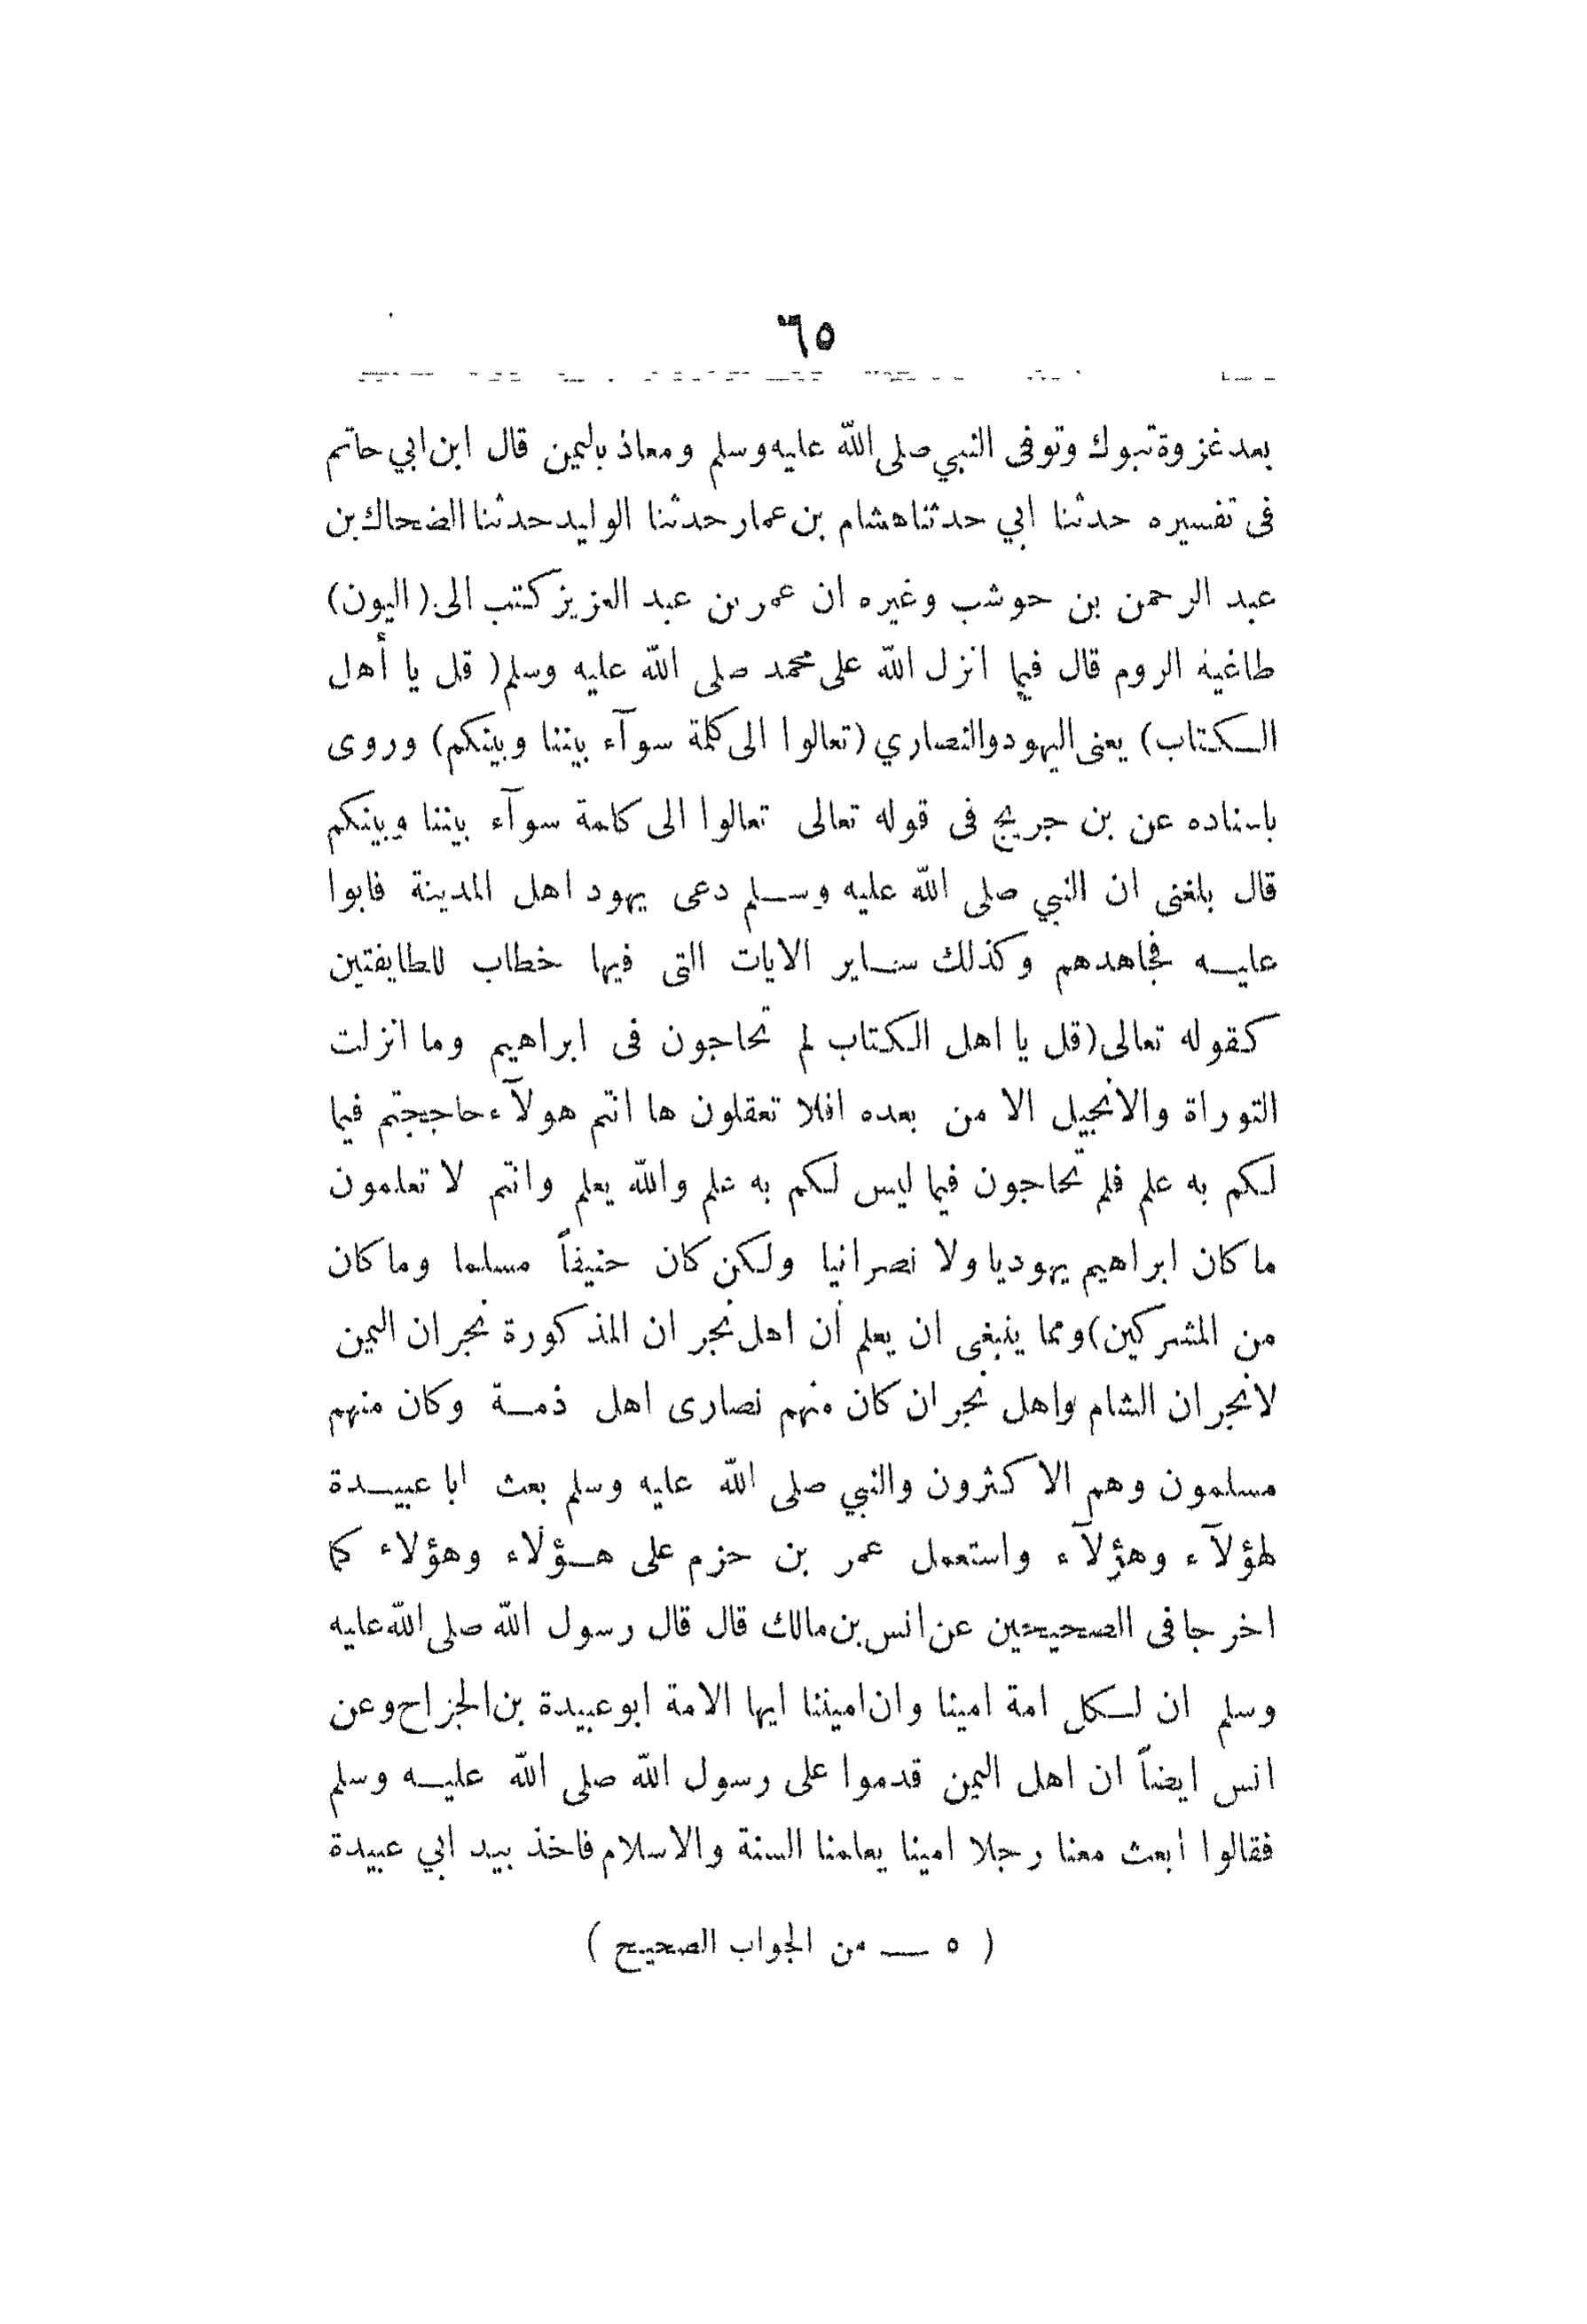 ٦٥
بعد غزوة تبوك وتوفى النبي صلى الله عليه وسلم ومعاذ باليمن قال ابن ابي حاتم
فى تفسيره حدثنا ابي حدثنا هشام بن عمار حدثنا الوليد حدثنا الضحاك بن
عبد الرحمن بن حوشب وغيره ان عمر بن عبد العزيز كتب الى (اليون)
طاغية الروم قال فيما انزل الله على محمد صلى الله عليه وسلم ( قل يا أهل
الكتاب) يعنى اليهود والنصاري (تعالوا الى كلمة سوآء بيننا وبينكم) وروى
باسناده عن بن جريج فى قوله تعالى تعالوا الى كلمة سوآء بيننا وبينكم
قال بلغنى ان النبي صلى الله عليه وسلم دعى يهود اهل المدينة فابوا
عليه فجاهدهم وكذلك ساير الايات التى فيها خطاب للطايفتين
كقوله تعالى (قل يا اهل الكتاب لم تحاجون فى ابراهيم وما انزلت
التوراة والانجيل الا من بعده افلا تعقلون ها انتم هولآء حاججتم فيما
لكم به علم فلم تحاجون فيما ليس لكم به علم والله يعلم وانتم لا تعلمون
ما كان ابراهيم يهوديا ولا نصرانيا ولكن كان حنيفاً مسلما وما كان
من المشركين) ومما ينبغى ان يعلم أن اهل نجران المذكورة نجران اليمن
لا نجران الشام واهل نجران كان منهم نصارى اهل ذمة وكان منهم
مسلمون وهم الاكثرون والنبي صلى الله عليه وسلم بعث ابا عبيدة
لهؤلآء وهؤلآء واستعمل عمر بن حزم على هؤلاء وهؤلاء كما
اخرجا فى الصحيحين عن انس بن مالك قال قال رسول الله صلى الله عليه
وسلم ان لكل امة امينا وان اميننا ايها الامة ابو عبيدة بن الجراح وعن
انس ايضاً ان اهل اليمن قدموا على رسول الله صلى الله عليه وسلم
فقالوا ابعث معنا رجلا امينا يعلمنا السنة والاسلام فاخذ بيد ابي عبيدة
( ٥ — من الجواب الصحيح )